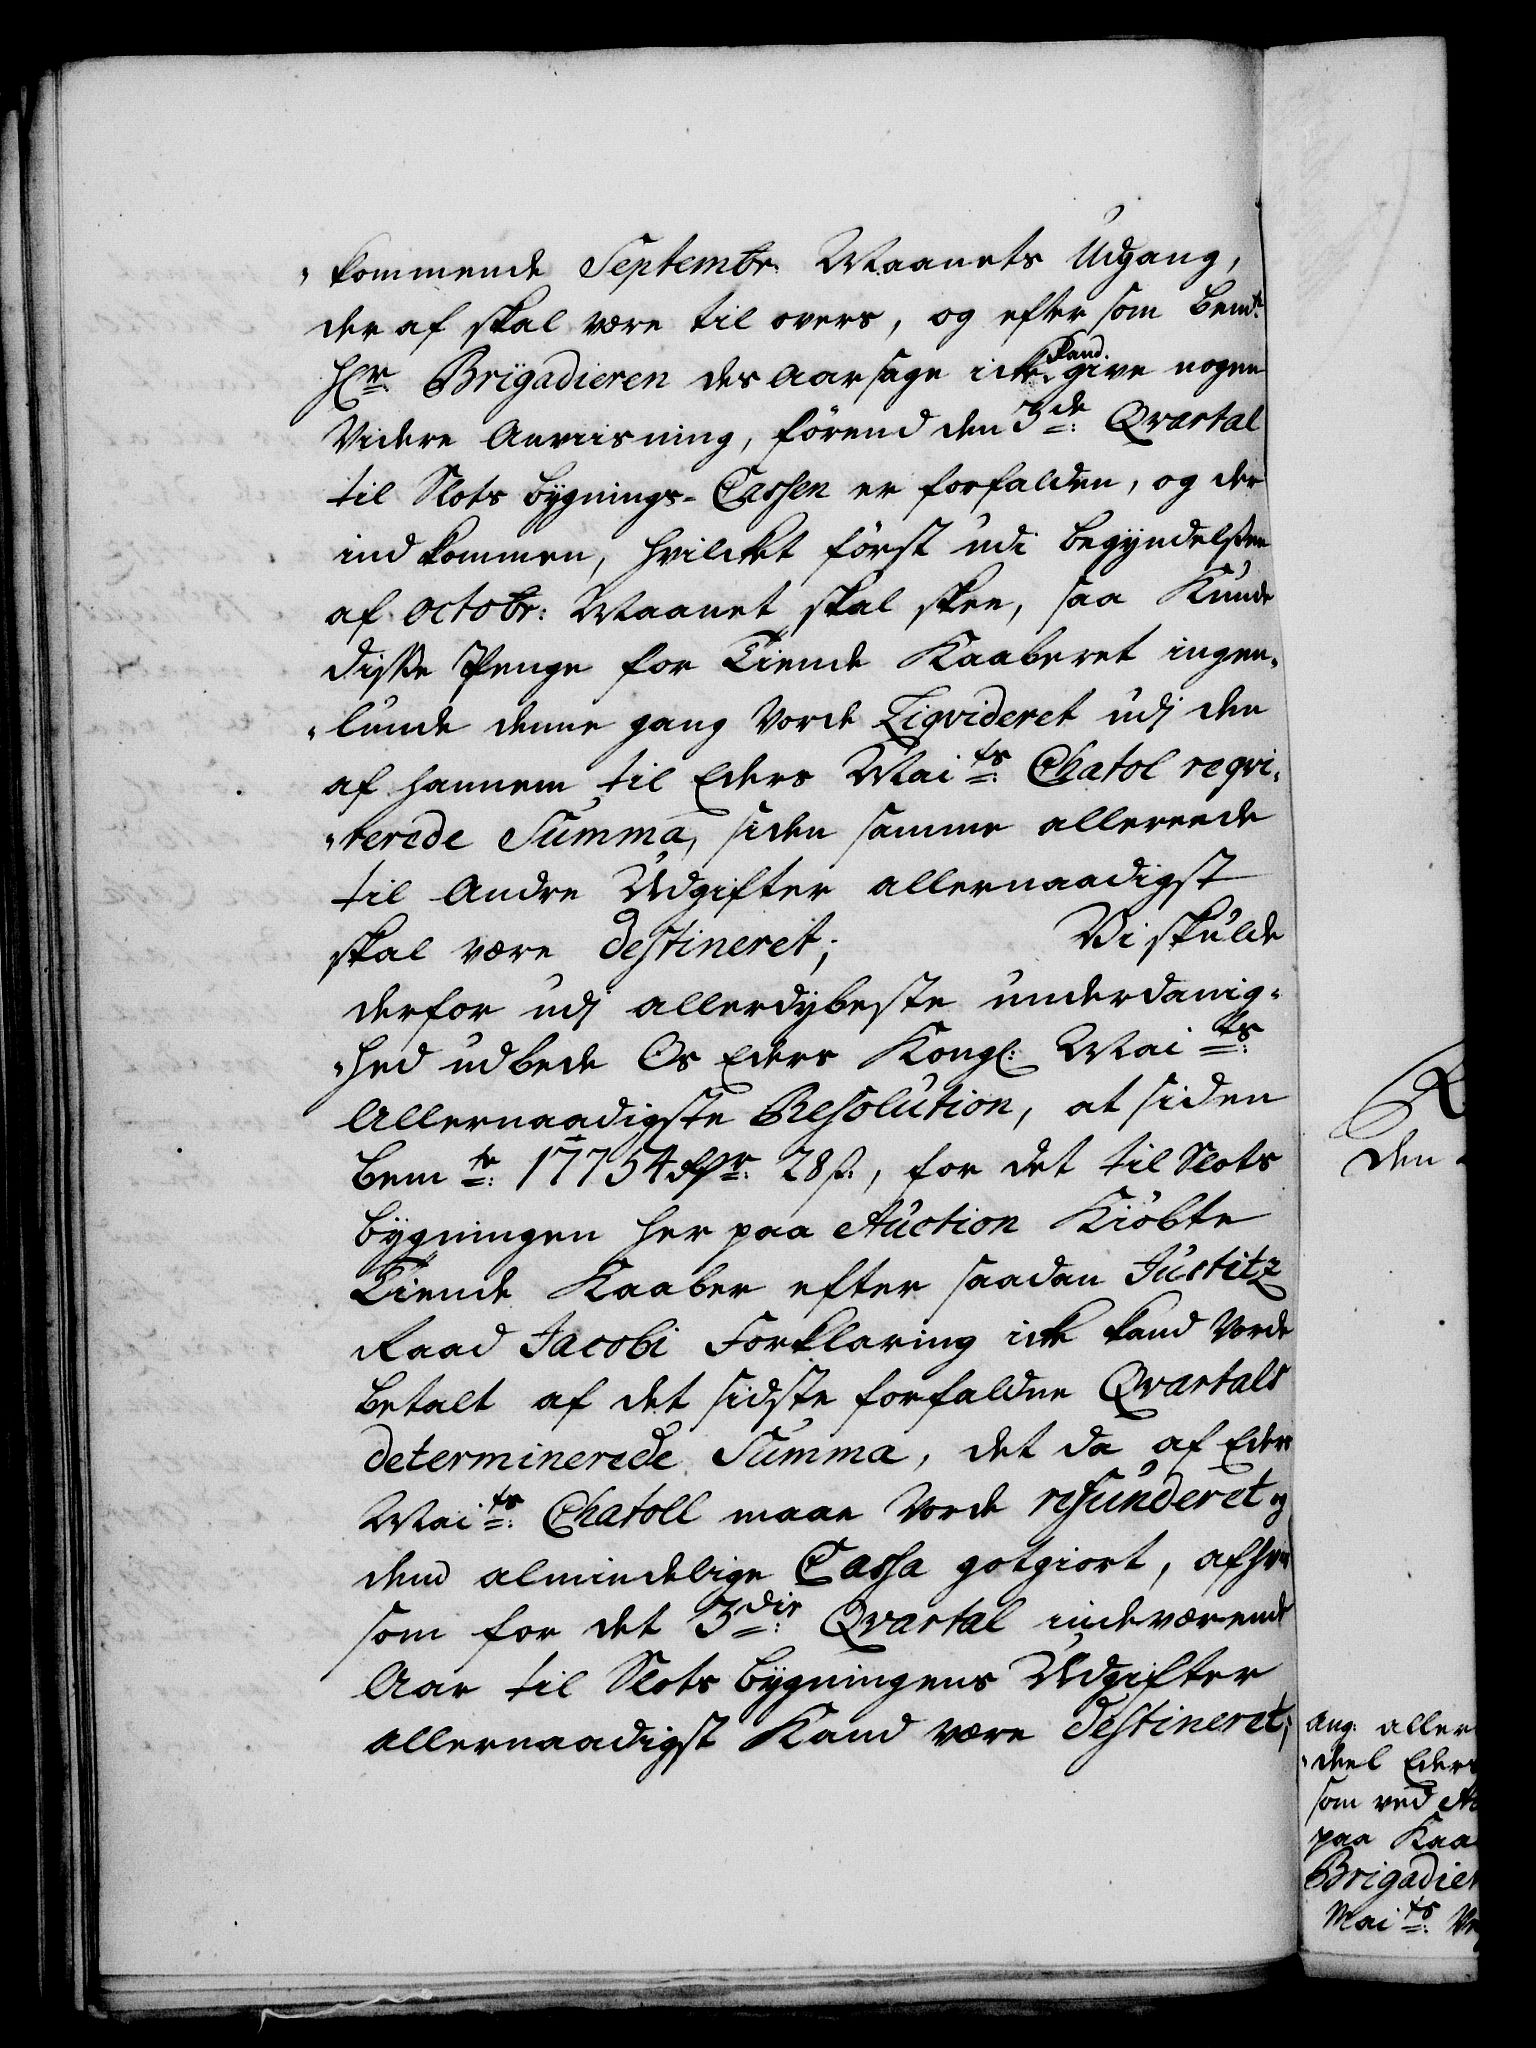 "kommende Septembr. Maanets Udgang,
der af skal være til overs, og efter som bemte
Hr. Brigadieren des Aarsage icke kand. give nogen
Videre Anviisning, förend den 3de: Qvartal
til Slots bygnings-Cassen er forfalden, og der
ind kommen, hvilcket först udi begyndelsen
af Octobr: Maanet skal skee, saa Kunde
disse Penge for Tiende Kaaberet ingen"
"lunde denne gang vorde Liqvideret udj den
af hannem til Eders Maits: Chatol reqvi"
"rerede Summa, siden samme allereede
til Andre Udgifter allernaadigst
skal være destineret; Vi skulde
derfor udj allerdybeste underdanig"
"hed udbede Os Eders Kongl: Maits:
Allernaadigste Resolution, at siden
bemte: 17754 Rdr: 28 s., for det til Slots
bygningen her paa Auction Kiöbte
Tiende Kaaber efter saadan Justitz
Raad Jacobi Forklaring icke kand vorde
betalt af det sidste forfaldne Qvartals
determinerede Summa, det da af Eders
Maits: Chatoll maae vorde refunderet og
dend almindelige Cassa gotgiort, af hvis
som for det 3die: Qvartal indeværende
Aar til Slots bygningens Udgifter
allernaadigst Kand være destineret;
den
Ang: aller
"deel Eders
som ved Au
paa Kaa
Brigadier
Maits: